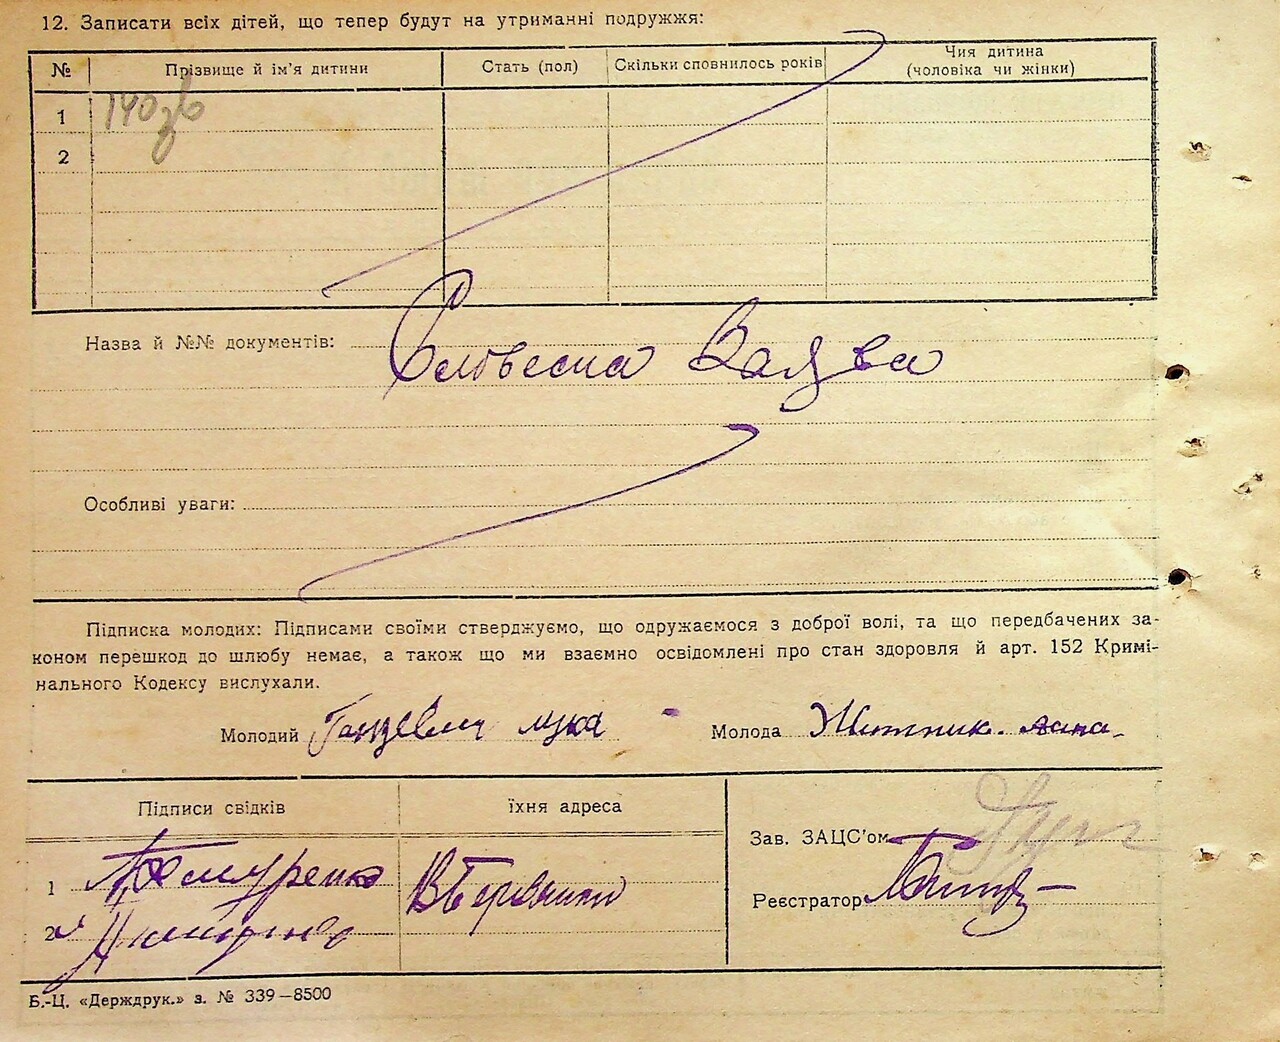 12. Записати всіх дітей, що тепер будут на утриманні подружжя:
№ Прізвище й ім'я дитини Стать (пол) Скільки сповнилось років Чия дитина (чоловіка чи жінки)
1
2
Назва й №№ документів: Словесна Заява
Особливі уваги:
Підписка молодих: Підписами своїми стверджуємо, що одружаємося з доброї волі, та що передбачених за-
коном перешкод до шлюбу немає, а також що ми взаємно освідомлені про стан здоровля й арт. 152 Кримі-
нального Кодексу вислухали.
Молодий Лука Молода Житник
Підписи свідків їхня адреса
Зав. ЗАЦС'ом
1
Реєстратор
2
Б.-Ц. «Держдрук.» з. № 339—8500